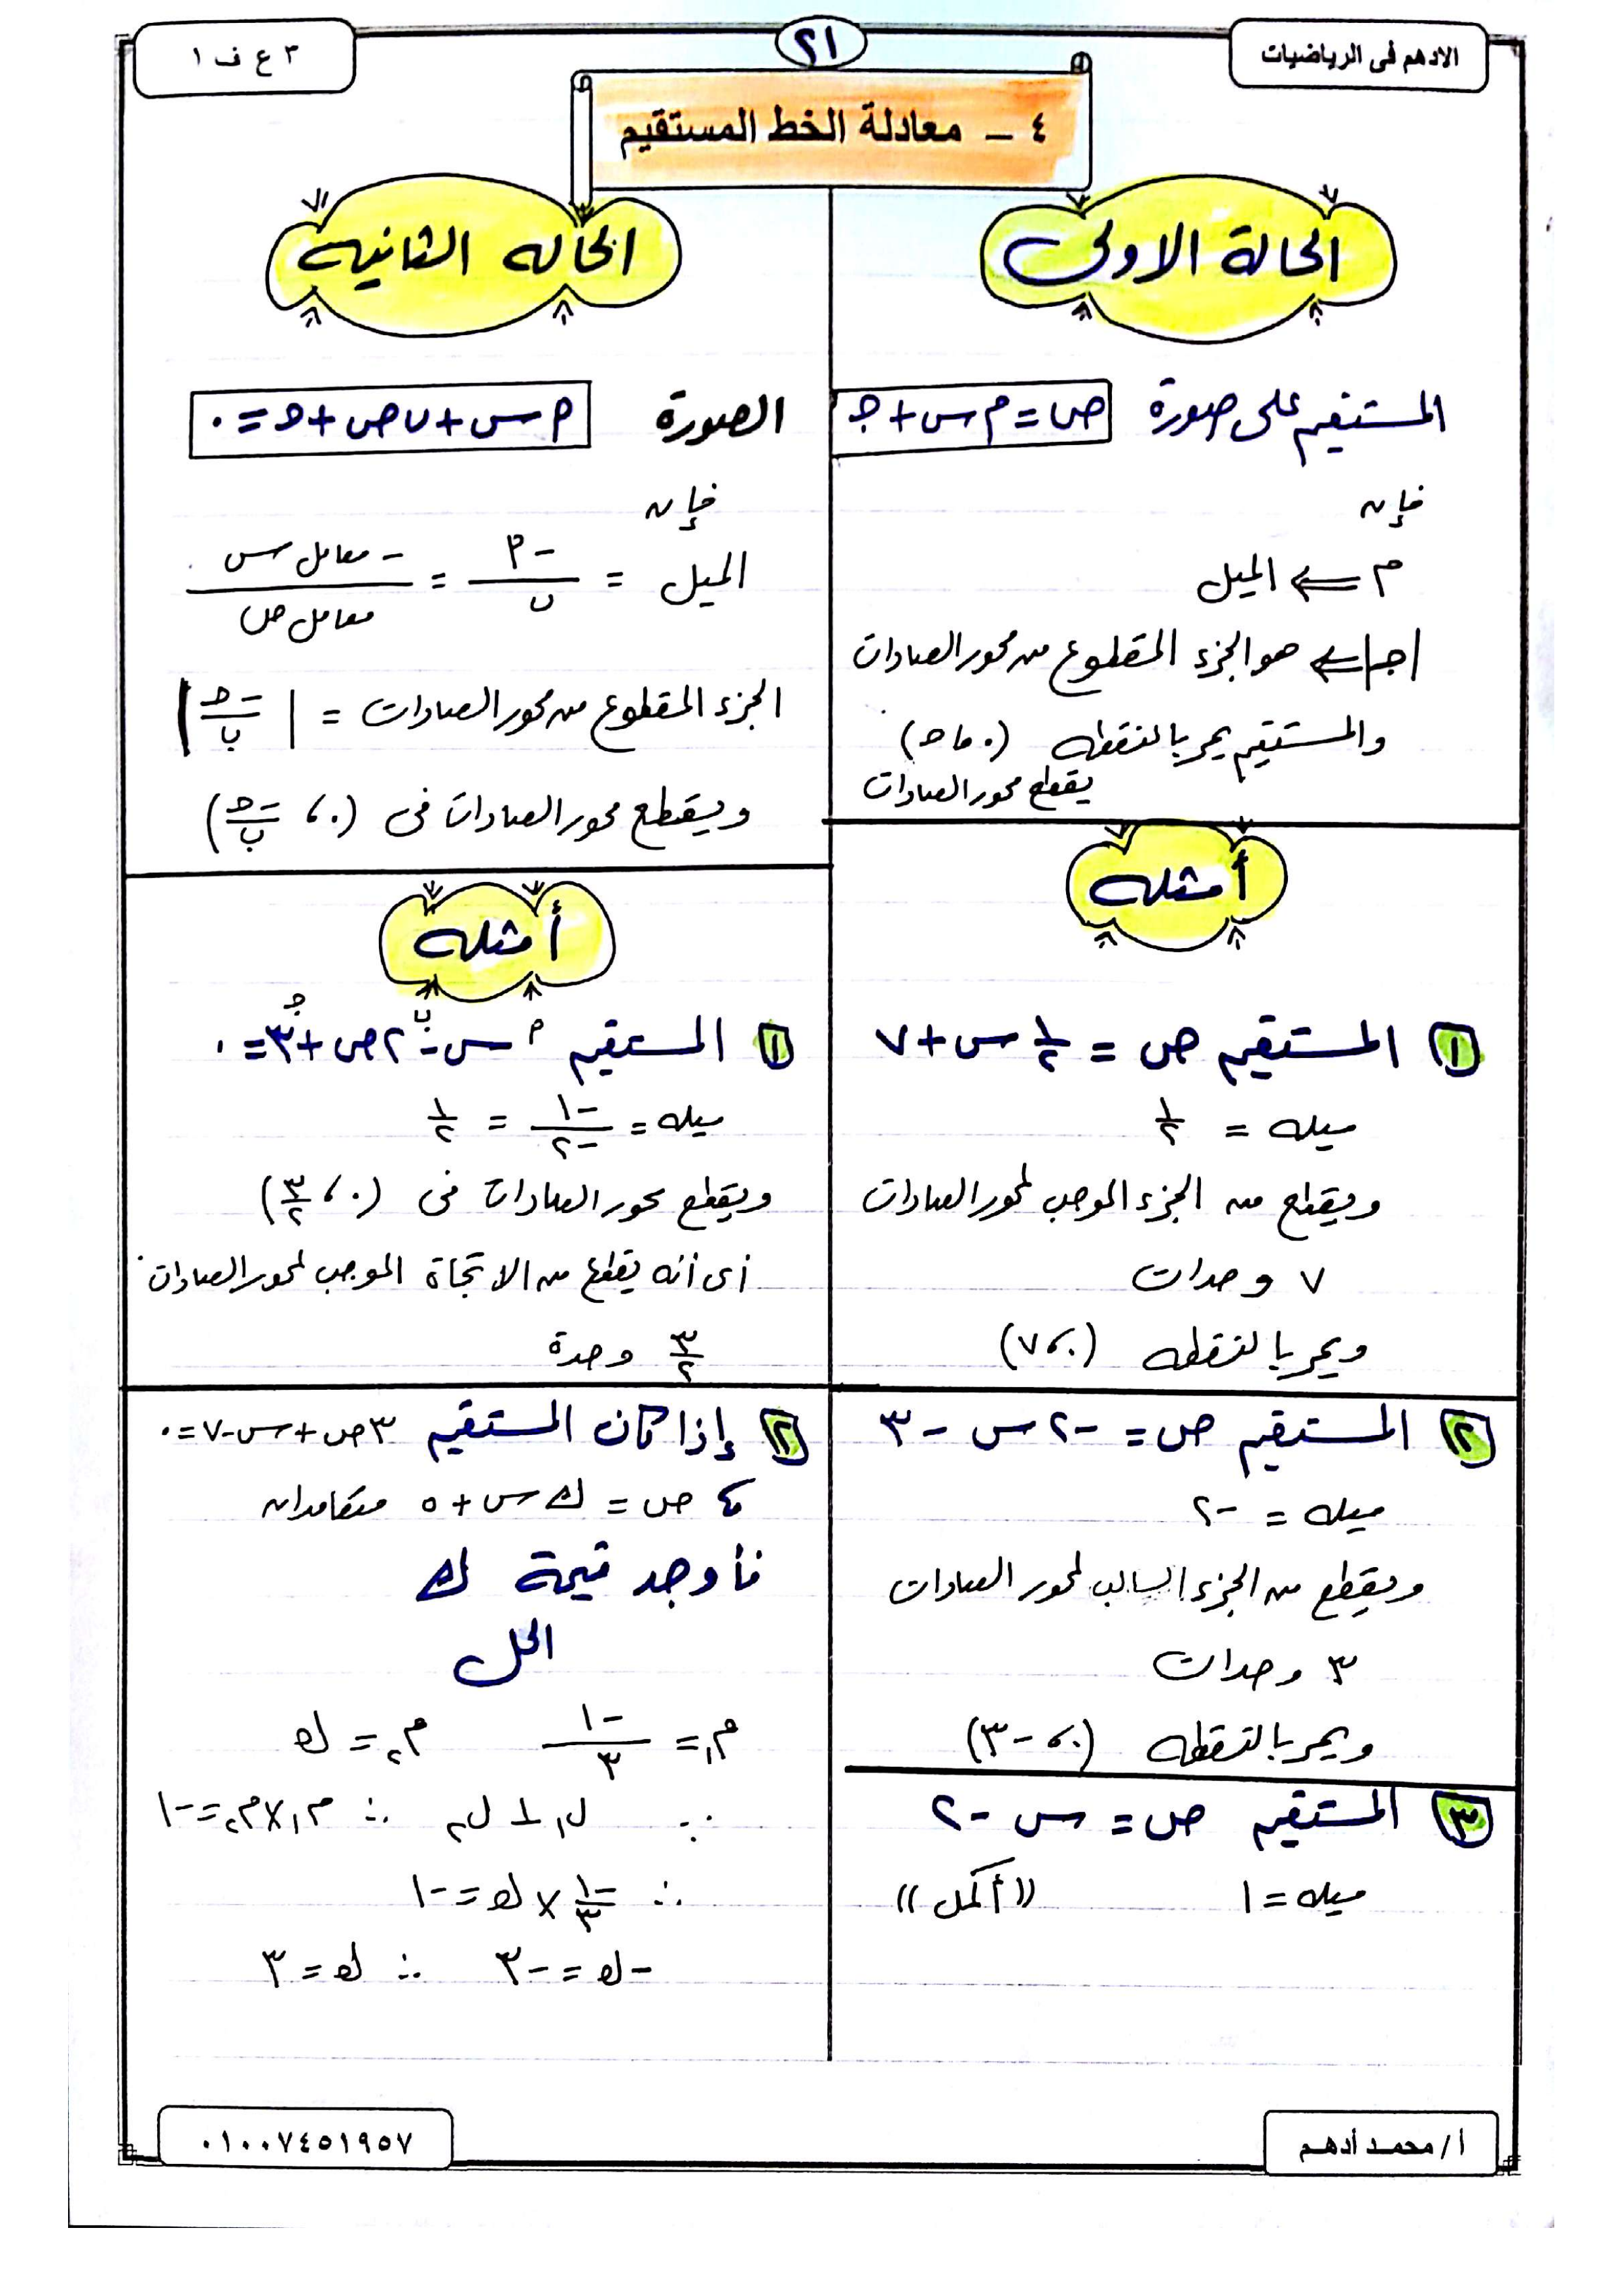 الادهم فى الرياضيات
٢١
٣ ع ف ١
٤ - معادلة الخط المستقيم
الحالة الاولى
المستقيم على صورة ص = م س + جـ
فإن
م ⇐ الميل
|جـ| ⇐ هو الجزء المقطوع من محور الصادات
والمستقيم يمر بالنقطه (٠ ، جـ)
يقطع محور الصادات
أمثله
١ المستقيم ص = ١/٢ س + ٧
ميله = ١/٢
ويقطع من الجزء الموجب لمحور الصادات
٧ وحدات
ويمر بالنقطه (٠ ، ٧)
٢ المستقيم ص = -٢ س - ٣
ميله = -٢
ويقطع من الجزء السالب لمحور الصادات
٣ وحدات
ويمر بالنقطه (٠ ، -٣)
٣ المستقيم ص = س - ٢
ميله = ١ ((أكمل))
الحاله الثانيه
الصورة م س + ب ص + جـ = ٠
فإن
الميل = -م/ب = -معامل س/معامل ص
الجزء المقطوع من محور الصادات = |-جـ/ب|
ويقطع محور الصادات فى (٠ ، -جـ/ب)
أمثله
م ب جـ
١ المستقيم س - ٢ص + ٣ = ٠
ميله = -١/-٢ = ١/٢
ويقطع محور الصادات فى (٠ ، ٣/٢)
أى أنه يقطع من الاتجاة الموجب لمحور الصادات
٣/٢ وحدة
٢ إذا كان المستقيم ٣ص + س - ٧ = ٠
، ص = ك س + ٥ متعامدان
فأوجد قيمة ك
الحل
م١ = -١/٣ م٢ = ك
∵ ل١ ⊥ ل٢ ∴ م١ × م٢ = -١
∴ -١/٣ × ك = -١
-ك = -٣ ∴ ك = ٣
أ / محمد أدهم
٠١٠٠٧٤٥١٩٥٧